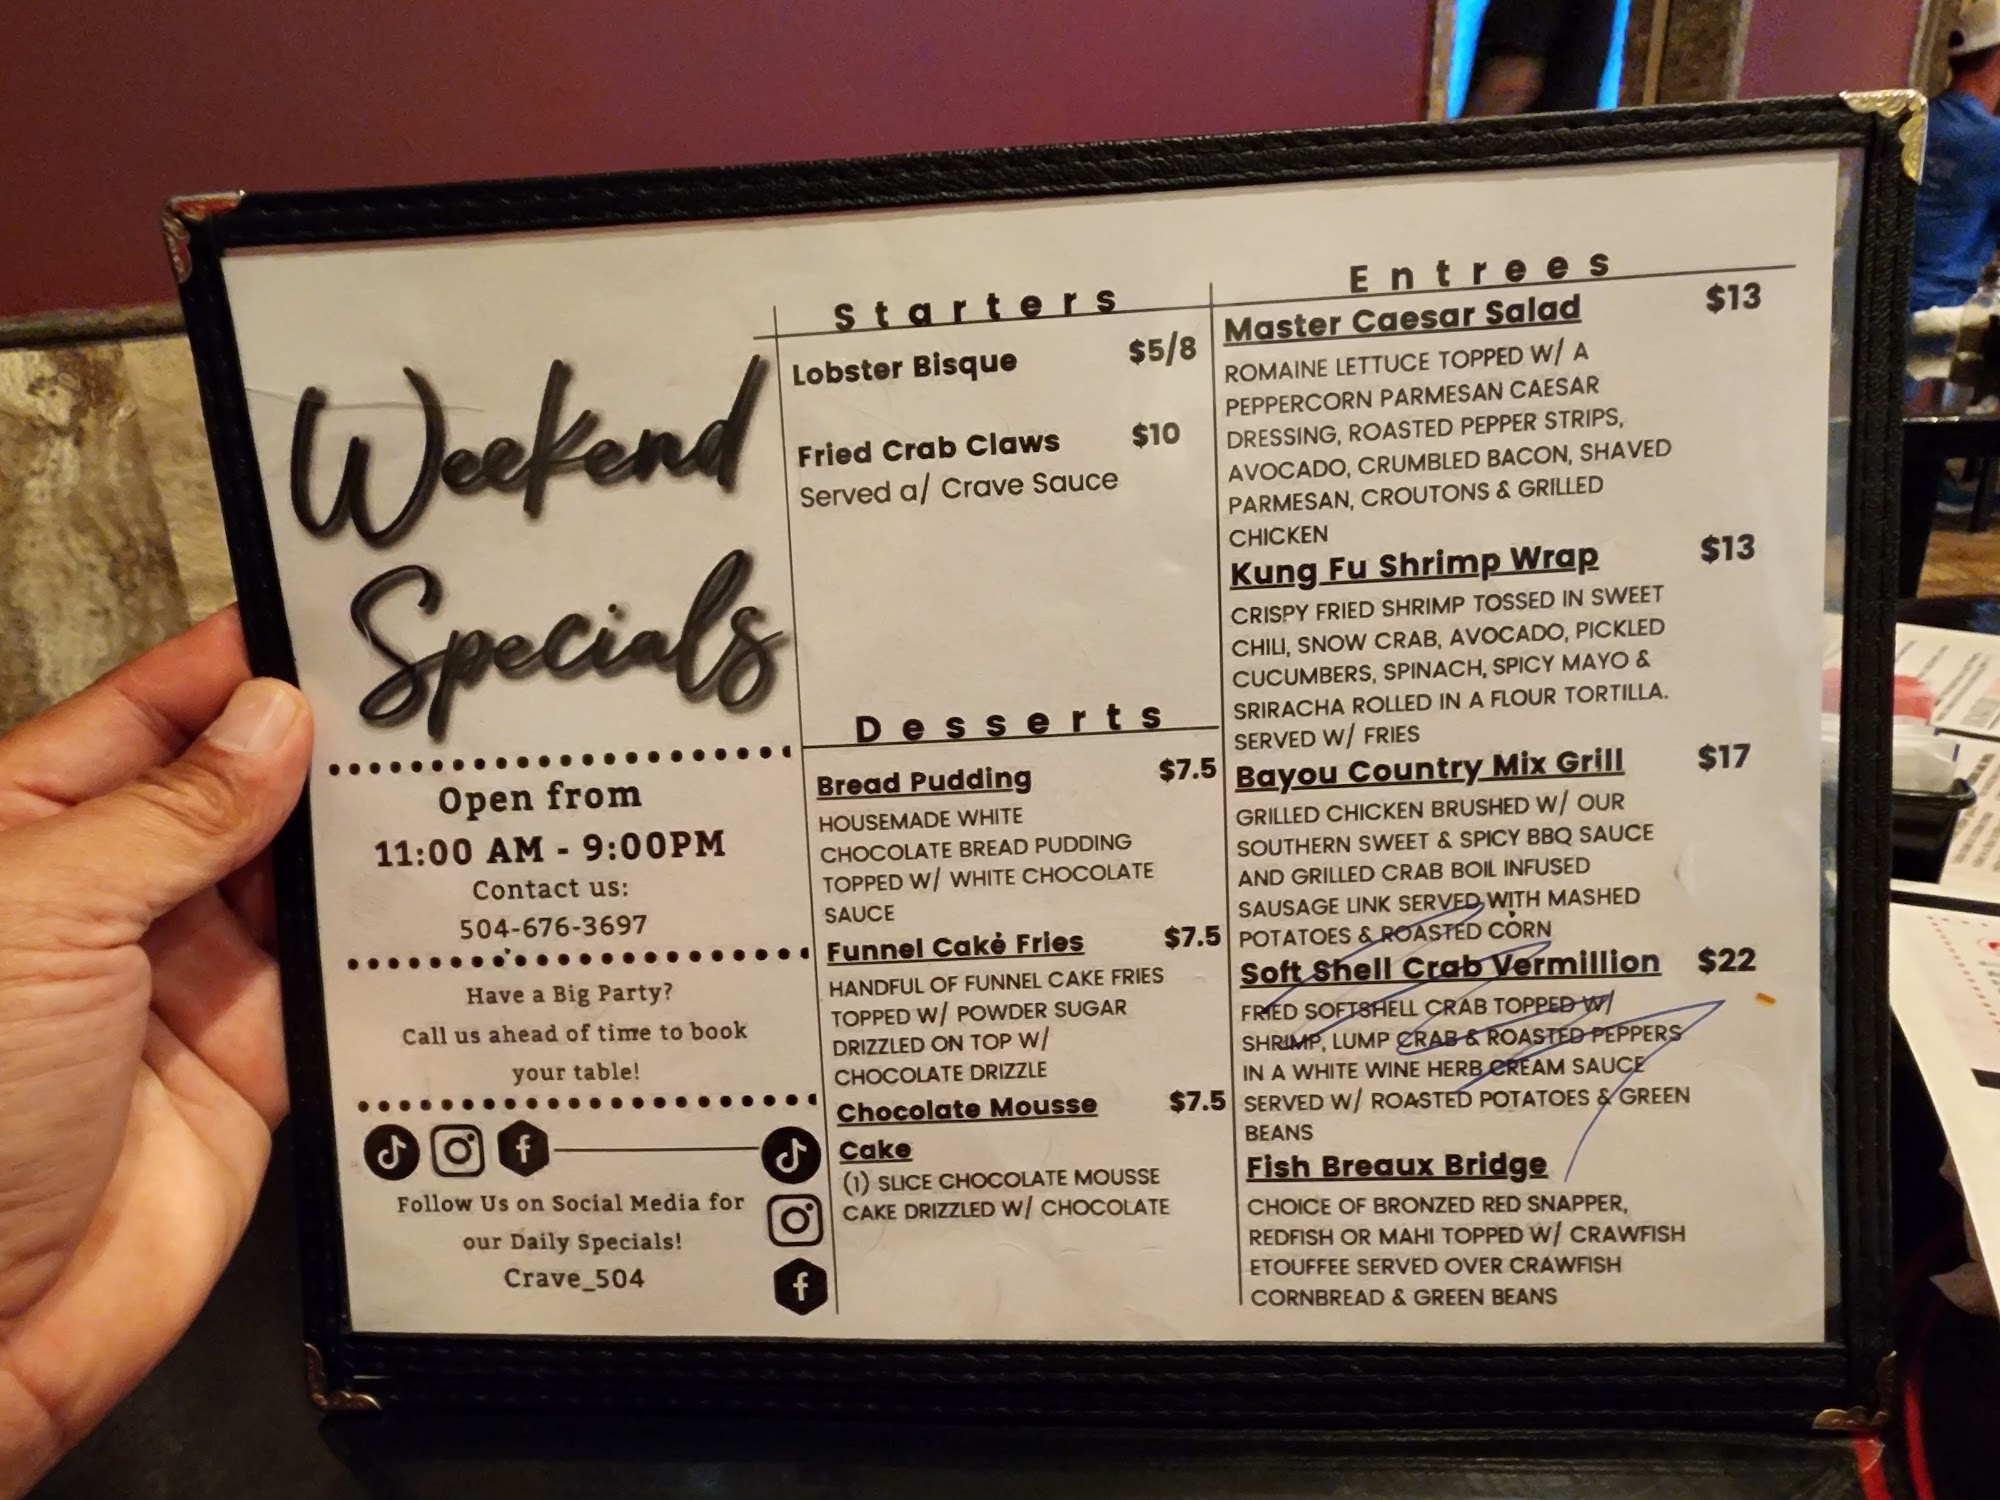 Weekend
Specials
Open from
11:00 AM - 9:00PM
Contact us:
504-676-3697
Have a Big Party?
Call us ahead of time to book
your table!
Follow Us on Social Media for
our Daily Specials!
Crave_504
Starters
Lobster Bisque $5/8
Fried Crab Claws $10
Served a/ Crave Sauce
Desserts
Bread Pudding $7.5
HOUSEMADE WHITE
CHOCOLATE BREAD PUDDING
TOPPED W/ WHITE CHOCOLATE
SAUCE
Funnel Cake Fries $7.5
HANDFUL OF FUNNEL CAKE FRIES
TOPPED W/ POWDER SUGAR
DRIZZLED ON TOP W/
CHOCOLATE DRIZZLE
Chocolate Mousse $7.5
Cake
(1) SLICE CHOCOLATE MOUSSE
CAKE DRIZZLED W/ CHOCOLATE
Entrees
Master Caesar Salad $13
ROMAINE LETTUCE TOPPED W/ A
PEPPERCORN PARMESAN CAESAR
DRESSING, ROASTED PEPPER STRIPS,
AVOCADO, CRUMBLED BACON, SHAVED
PARMESAN, CROUTONS & GRILLED
CHICKEN
Kung Fu Shrimp Wrap $13
CRISPY FRIED SHRIMP TOSSED IN SWEET
CHILI, SNOW CRAB, AVOCADO, PICKLED
CUCUMBERS, SPINACH, SPICY MAYO &
SRIRACHA ROLLED IN A FLOUR TORTILLA.
SERVED W/ FRIES
Bayou Country Mix Grill $17
GRILLED CHICKEN BRUSHED W/ OUR
SOUTHERN SWEET & SPICY BBQ SAUCE
AND GRILLED CRAB BOIL INFUSED
SAUSAGE LINK SERVED WITH MASHED
POTATOES & ROASTED CORN
Soft Shell Crab Vermillion $22
FRIED SOFTSHELL CRAB TOPPED W/
SHRIMP, LUMP CRAB & ROASTED PEPPERS
IN A WHITE WINE HERB CREAM SAUCE
SERVED W/ ROASTED POTATOES & GREEN
BEANS
Fish Breaux Bridge
CHOICE OF BRONZED RED SNAPPER,
REDFISH OR MAHI TOPPED W/ CRAWFISH
ETOUFFEE SERVED OVER CRAWFISH
CORNBREAD & GREEN BEANS